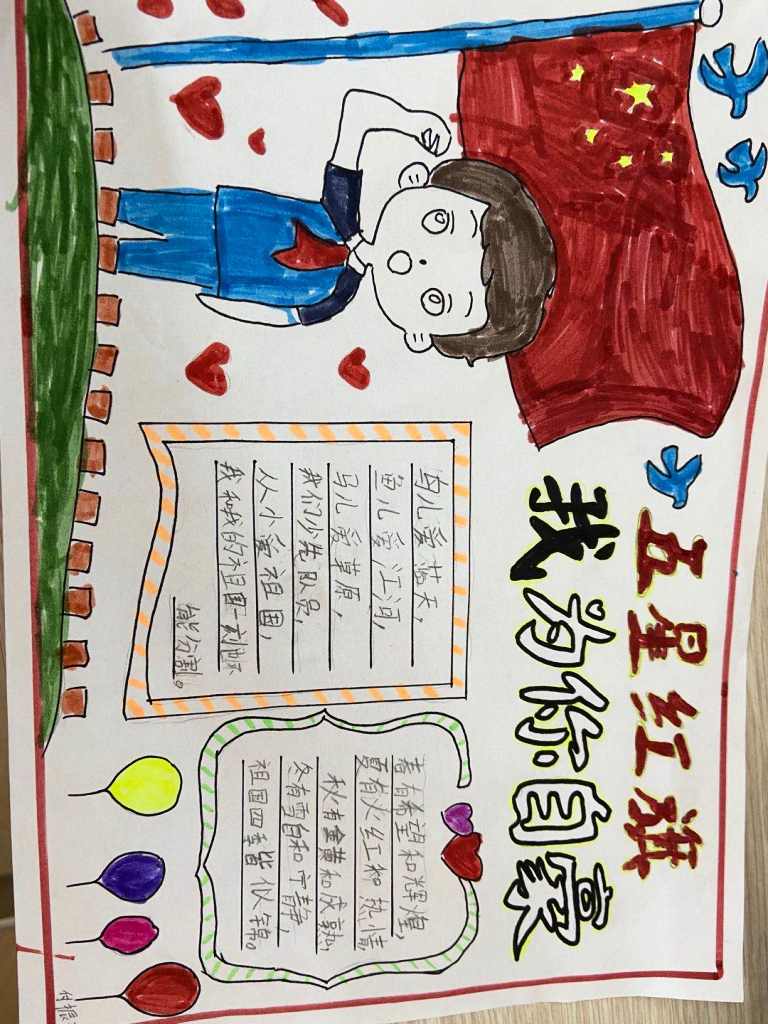 五星红旗
我为你自豪
鸟儿爱蓝天,
鱼儿爱江河,
马儿爱草原,
我们少先队员,
从小爱祖国,
我和我的祖国一刻也不
能分割。
春有希望和辉煌,
夏有火红和热情
秋有金黄和成熟,
冬有雪白和宁静,
祖国四季皆似锦。